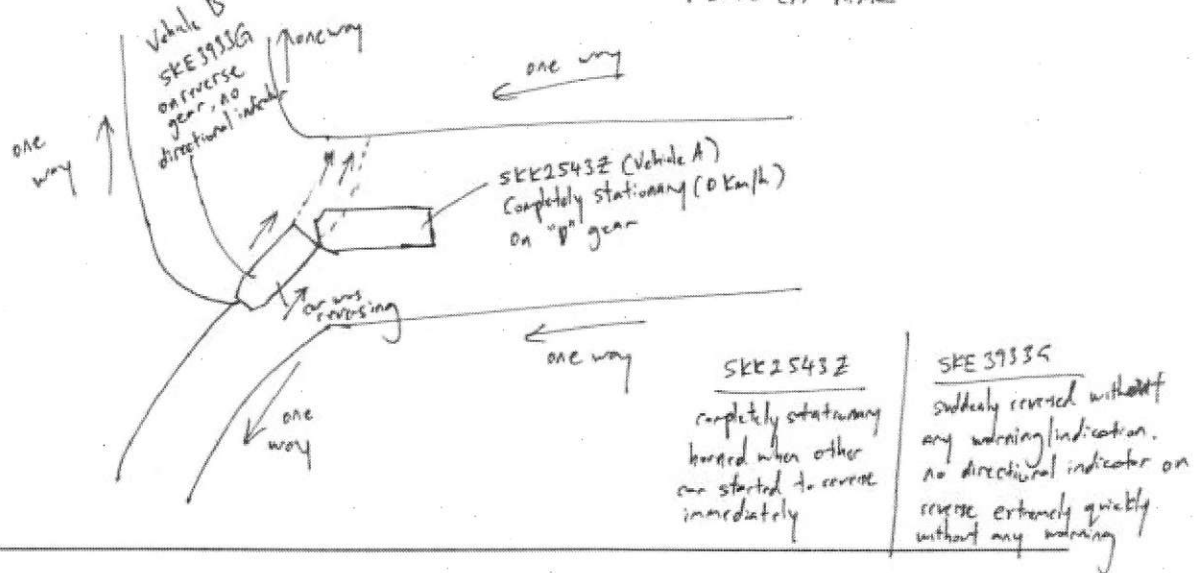 Vehicle B
SKE3933G
on reverse
gear, no
directional indicator
one way
one way
one
way
SKK2543Z (Vehicle A)
Completely stationary (0 km/h)
On "D" gear
car was
reversing
one way
one
way
SKK2543Z
completely stationary
horned when other
car started to reverse
immediately
SKE3933G
suddenly reversed without
any warning/indication.
no directional indicator on
reverse extremely quickly
without any warning